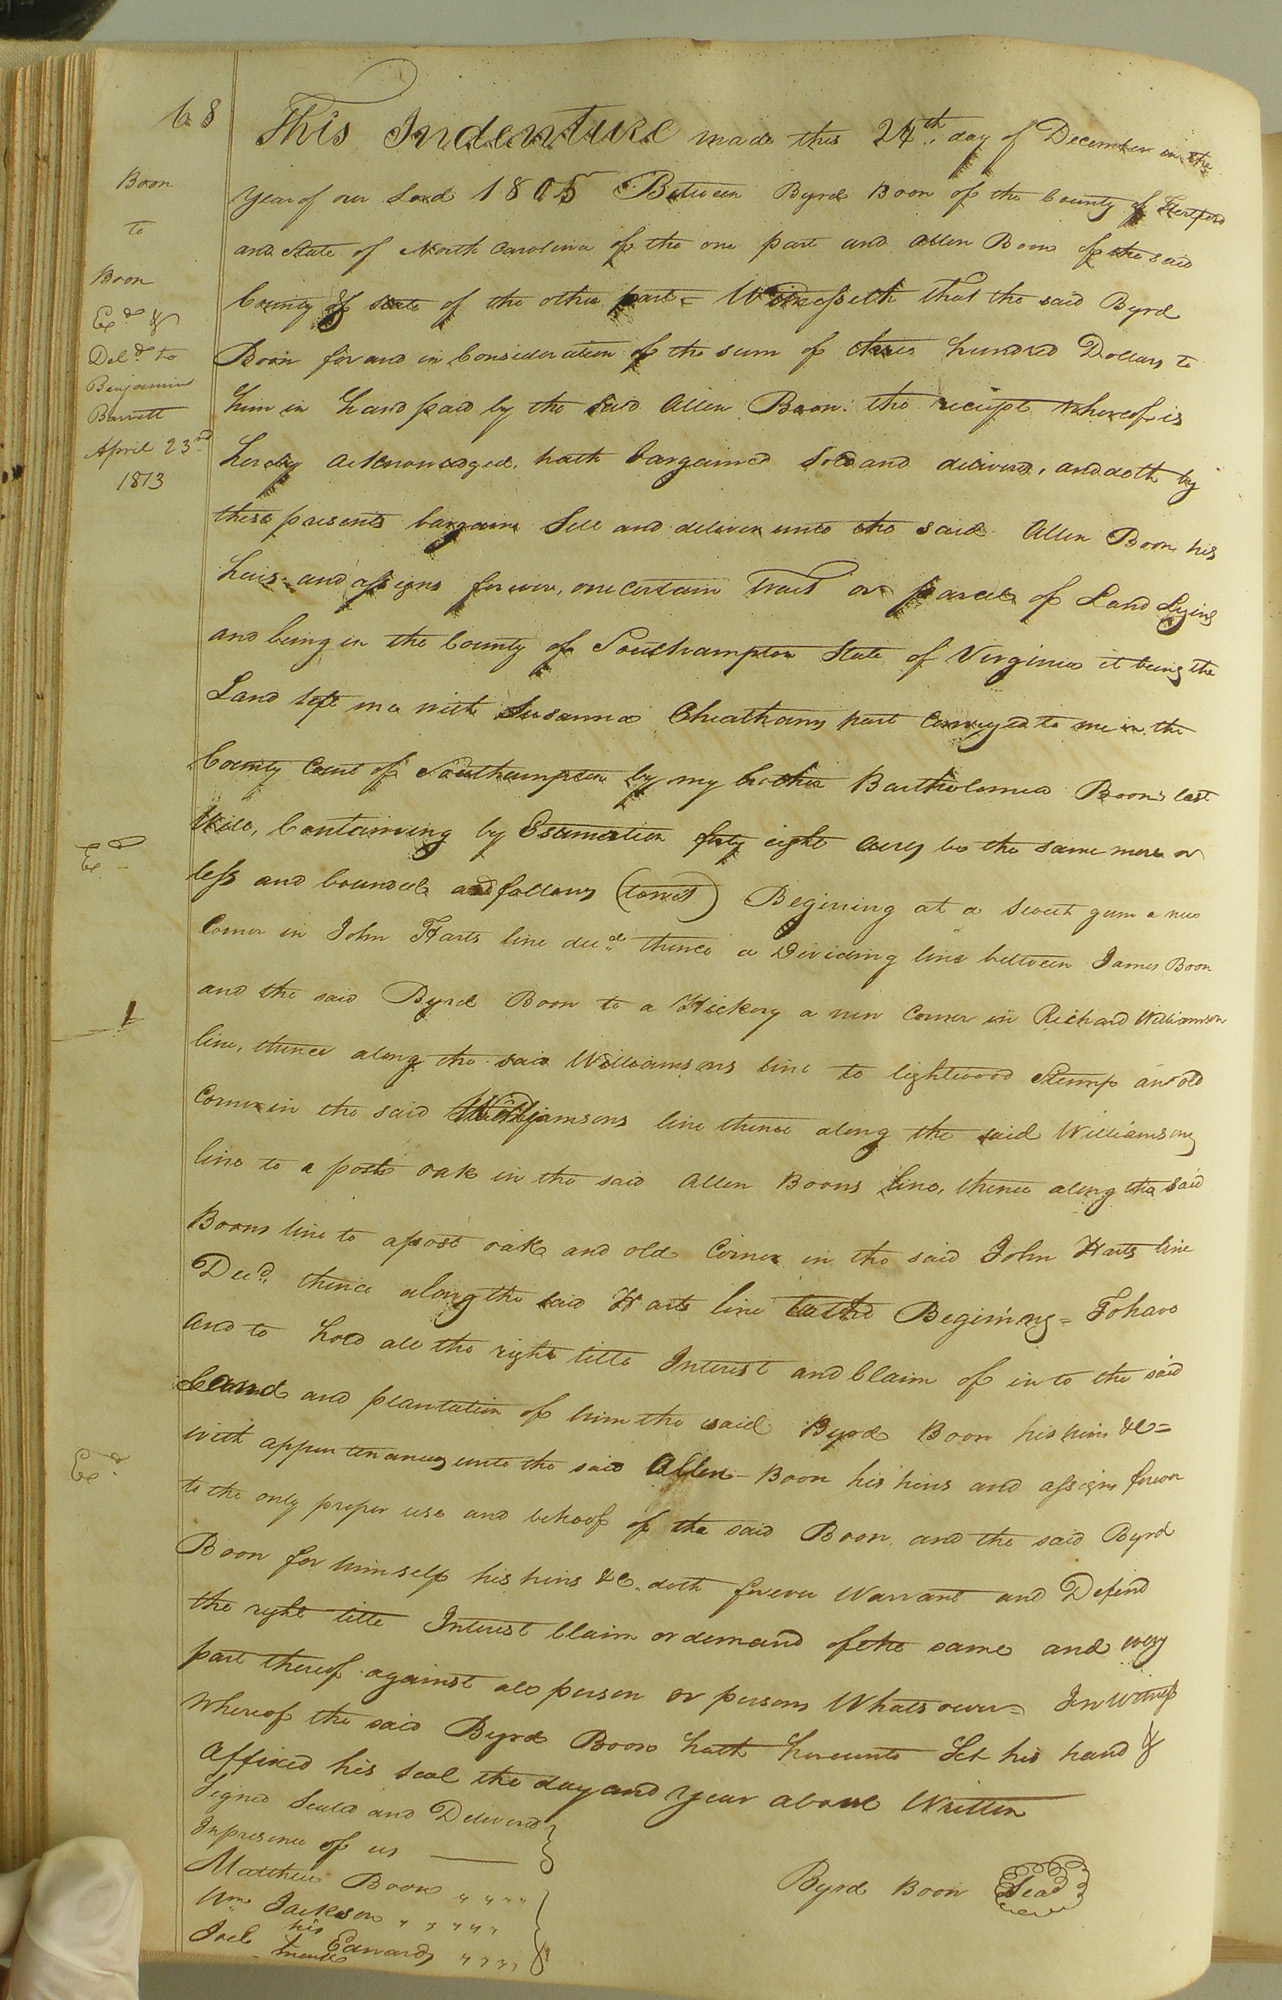 68
Boon
to
Boon
Exd &
Deld to
Benjamin
Barrett
April 23rd
1813
Exd
1
Exd
This Indenture made this 24th day of December in the
year of our Lord 1805 Between Byrd Boon of the County of Hertford
and State of North Carolina of the one part and Allen Boon of the said
County & State of the other part = Witnesseth that the said Byrd
Boon for and in Consideration of the sum of three hundred Dollars to
him in hand paid by the said Allen Boon the reciept whereof is
hereby acknowledged, hath bargained Sold and deliverd, and doth by
these presents bargain Sell and deliver unto the said Allen Boon his
heirs and assigns forever, one certain Tract or parcel of Land Lying
and being in the County of Southampton State of Virginia it being the
Land left me with Susanna Cheathams part conveyed to me in the
County Court of Southampton by my brother Bartholomew Boons last
Will, Containing by Estimation forty eight acres be the same more or
less and bounded as follows (towit) Begining at a Sweet gum a new
Corner in John Harts line decd thence a Dividing line between James Boon
and the said Byrd Boon to a Hickory a new Corner in Richard Williamson
line, thence along the said Williamsons line to lightwood Stump an old
Corner in the said Williamsons line thence along the said Williamsons
line to a post oak in the said Allen Boons line, thence along the said
Boons line to a post oak and old Corner in the said John Harts line
Decd. thence along the said Harts line to the Begining = To have
and to hold all the right title Interest and Claim of in to the said
Land and plantation of him the said Byrd Boon his heirs &c =
with appurtenances unto the said Allen - Boon his heirs and assigns forever
to the only proper use and behoof of the said Boon and the said Byrd
Boon for himself his heirs &c. doth forever Warrant and Defend
the right title Interest Claim or demand of the same and every
part thereof against all person or persons Whatsoever = In Witness
Whereof the said Byrd Boon hath hereunto Set his hand &
Affixed his Seal the day and year above Written
Signed Seald and Deliverd
In presence of us
Matthew Boon
Wm Jackson
Joel his mark Edwards
Byrd Boon Seal